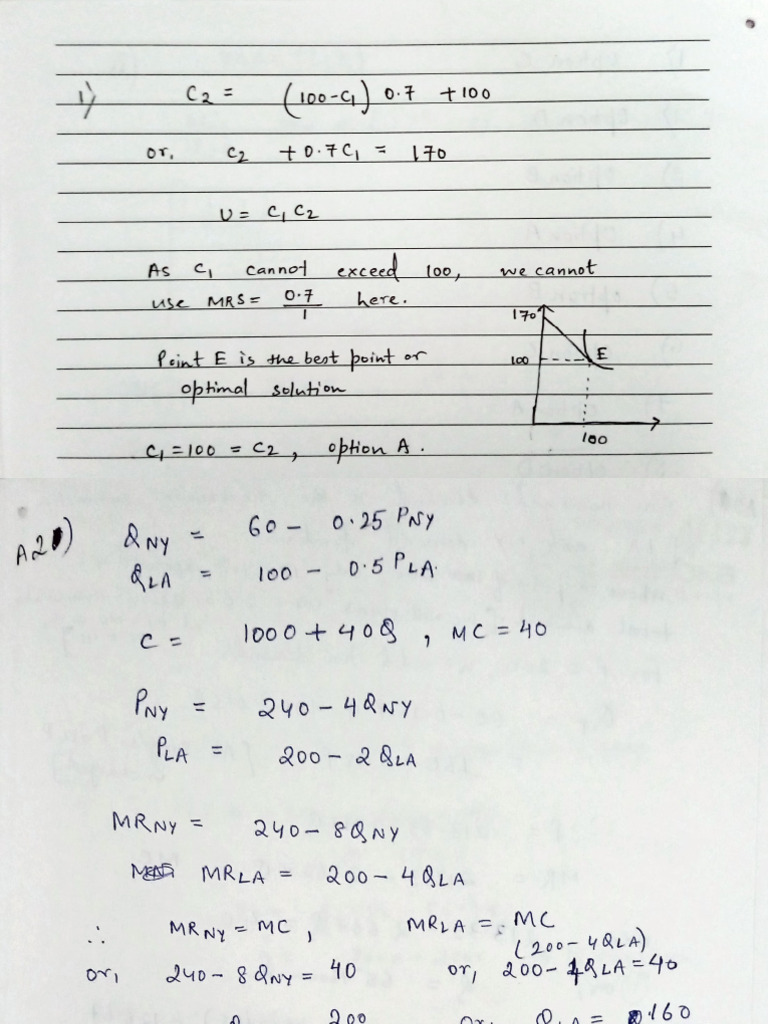 1) C2 = (100-C1) 0.7 +100
or, C2 + 0.7C1 = 170
U = C1 C2
As C1 cannot exceed 100, we cannot
use MRS = 0.7/1 here.
170
Point E is the best point or
100 E
optimal solution
100
C1 = 100 = C2, option A.
A2) QNY = 60 - 0.25 PNY
QLA = 100 - 0.5 PLA.
C = 1000 + 40Q, MC = 40
PNY = 240 - 4QNY
PLA = 200 - 2QLA
MRNY = 240 - 8QNY
MRLA = 200 - 4QLA
∴ MRNY = MC, MRLA = MC
(200 - 4QLA)
or, 240 - 8QNY = 40 or, 200 - 4QLA = 40
200 or, QLA = 160